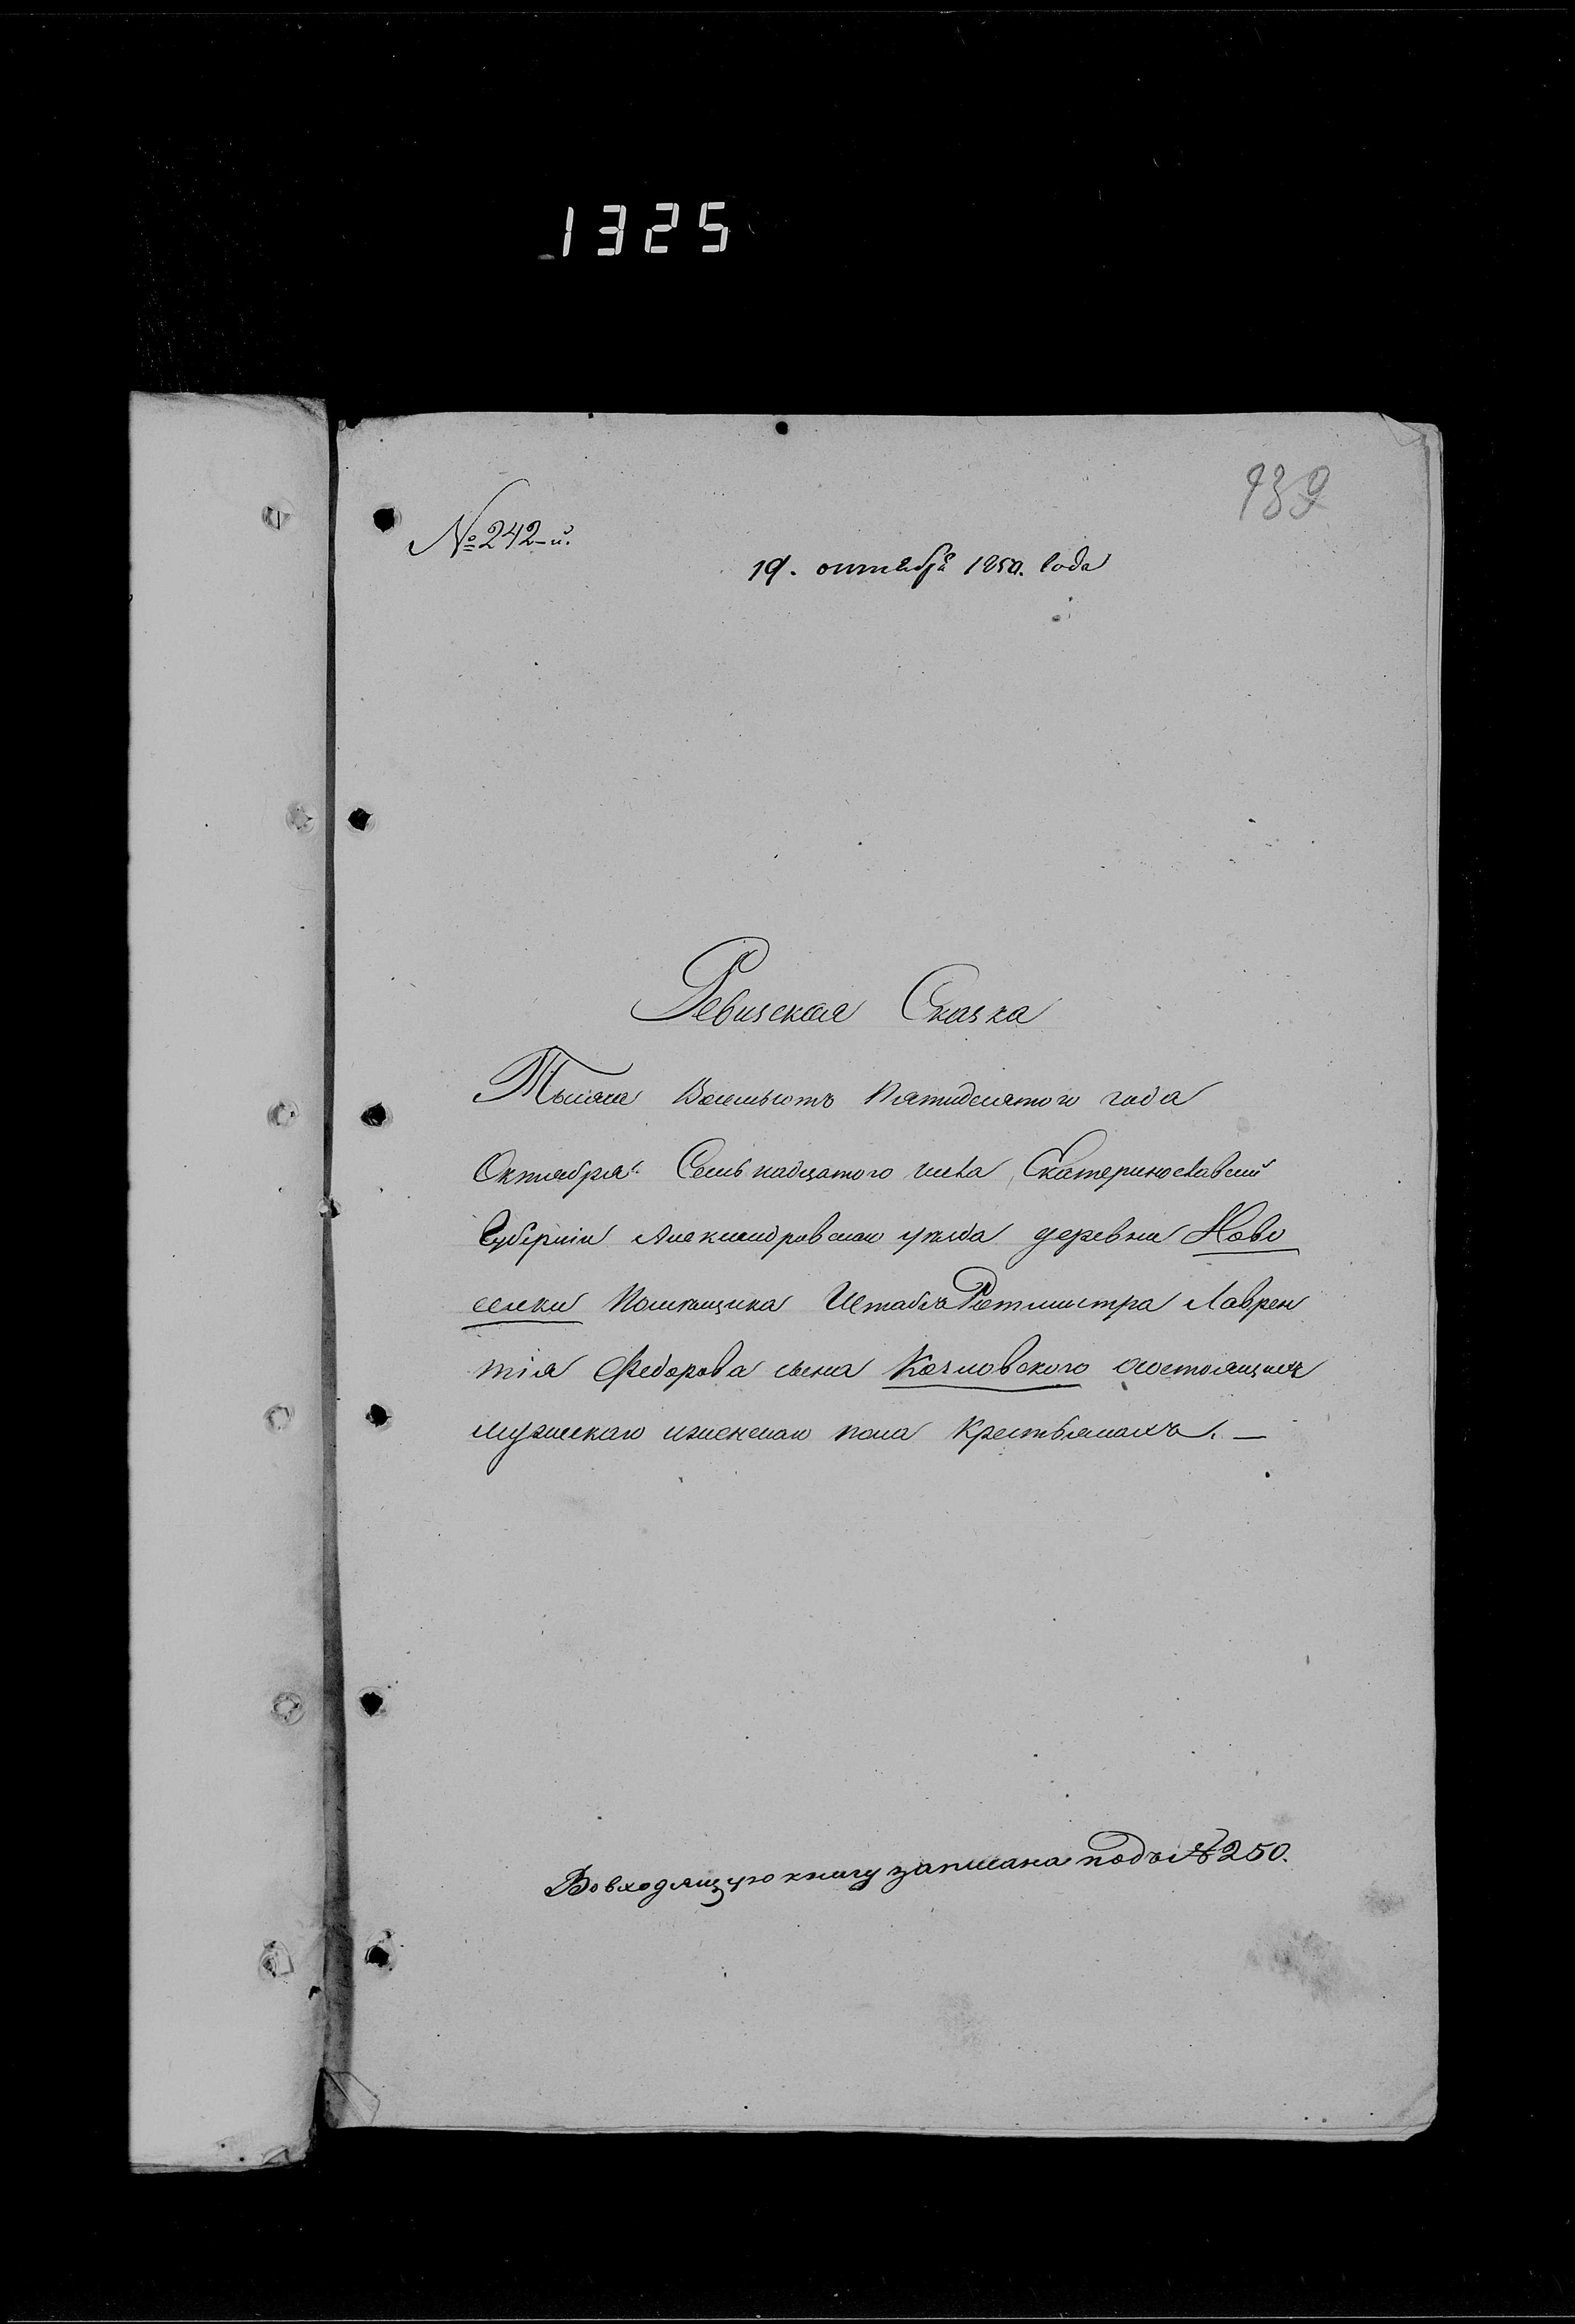 1325
939
№ 242-й.
19. октября 1850. года
Ревизская Сказка
Тысяча Восемьсотъ Пятидесятого года
Октября Семьнадцатого числа, Екатеринославской
Губерніи Александровскаго уезда деревни Ново
селки Помещика Штабсъ Ротмистра Лаврен
тія Федорова сына Козловского состоящихъ
мужескаго иженскаго пола Крестьянахъ. —
Во входящую книгу записана подъ № 250.